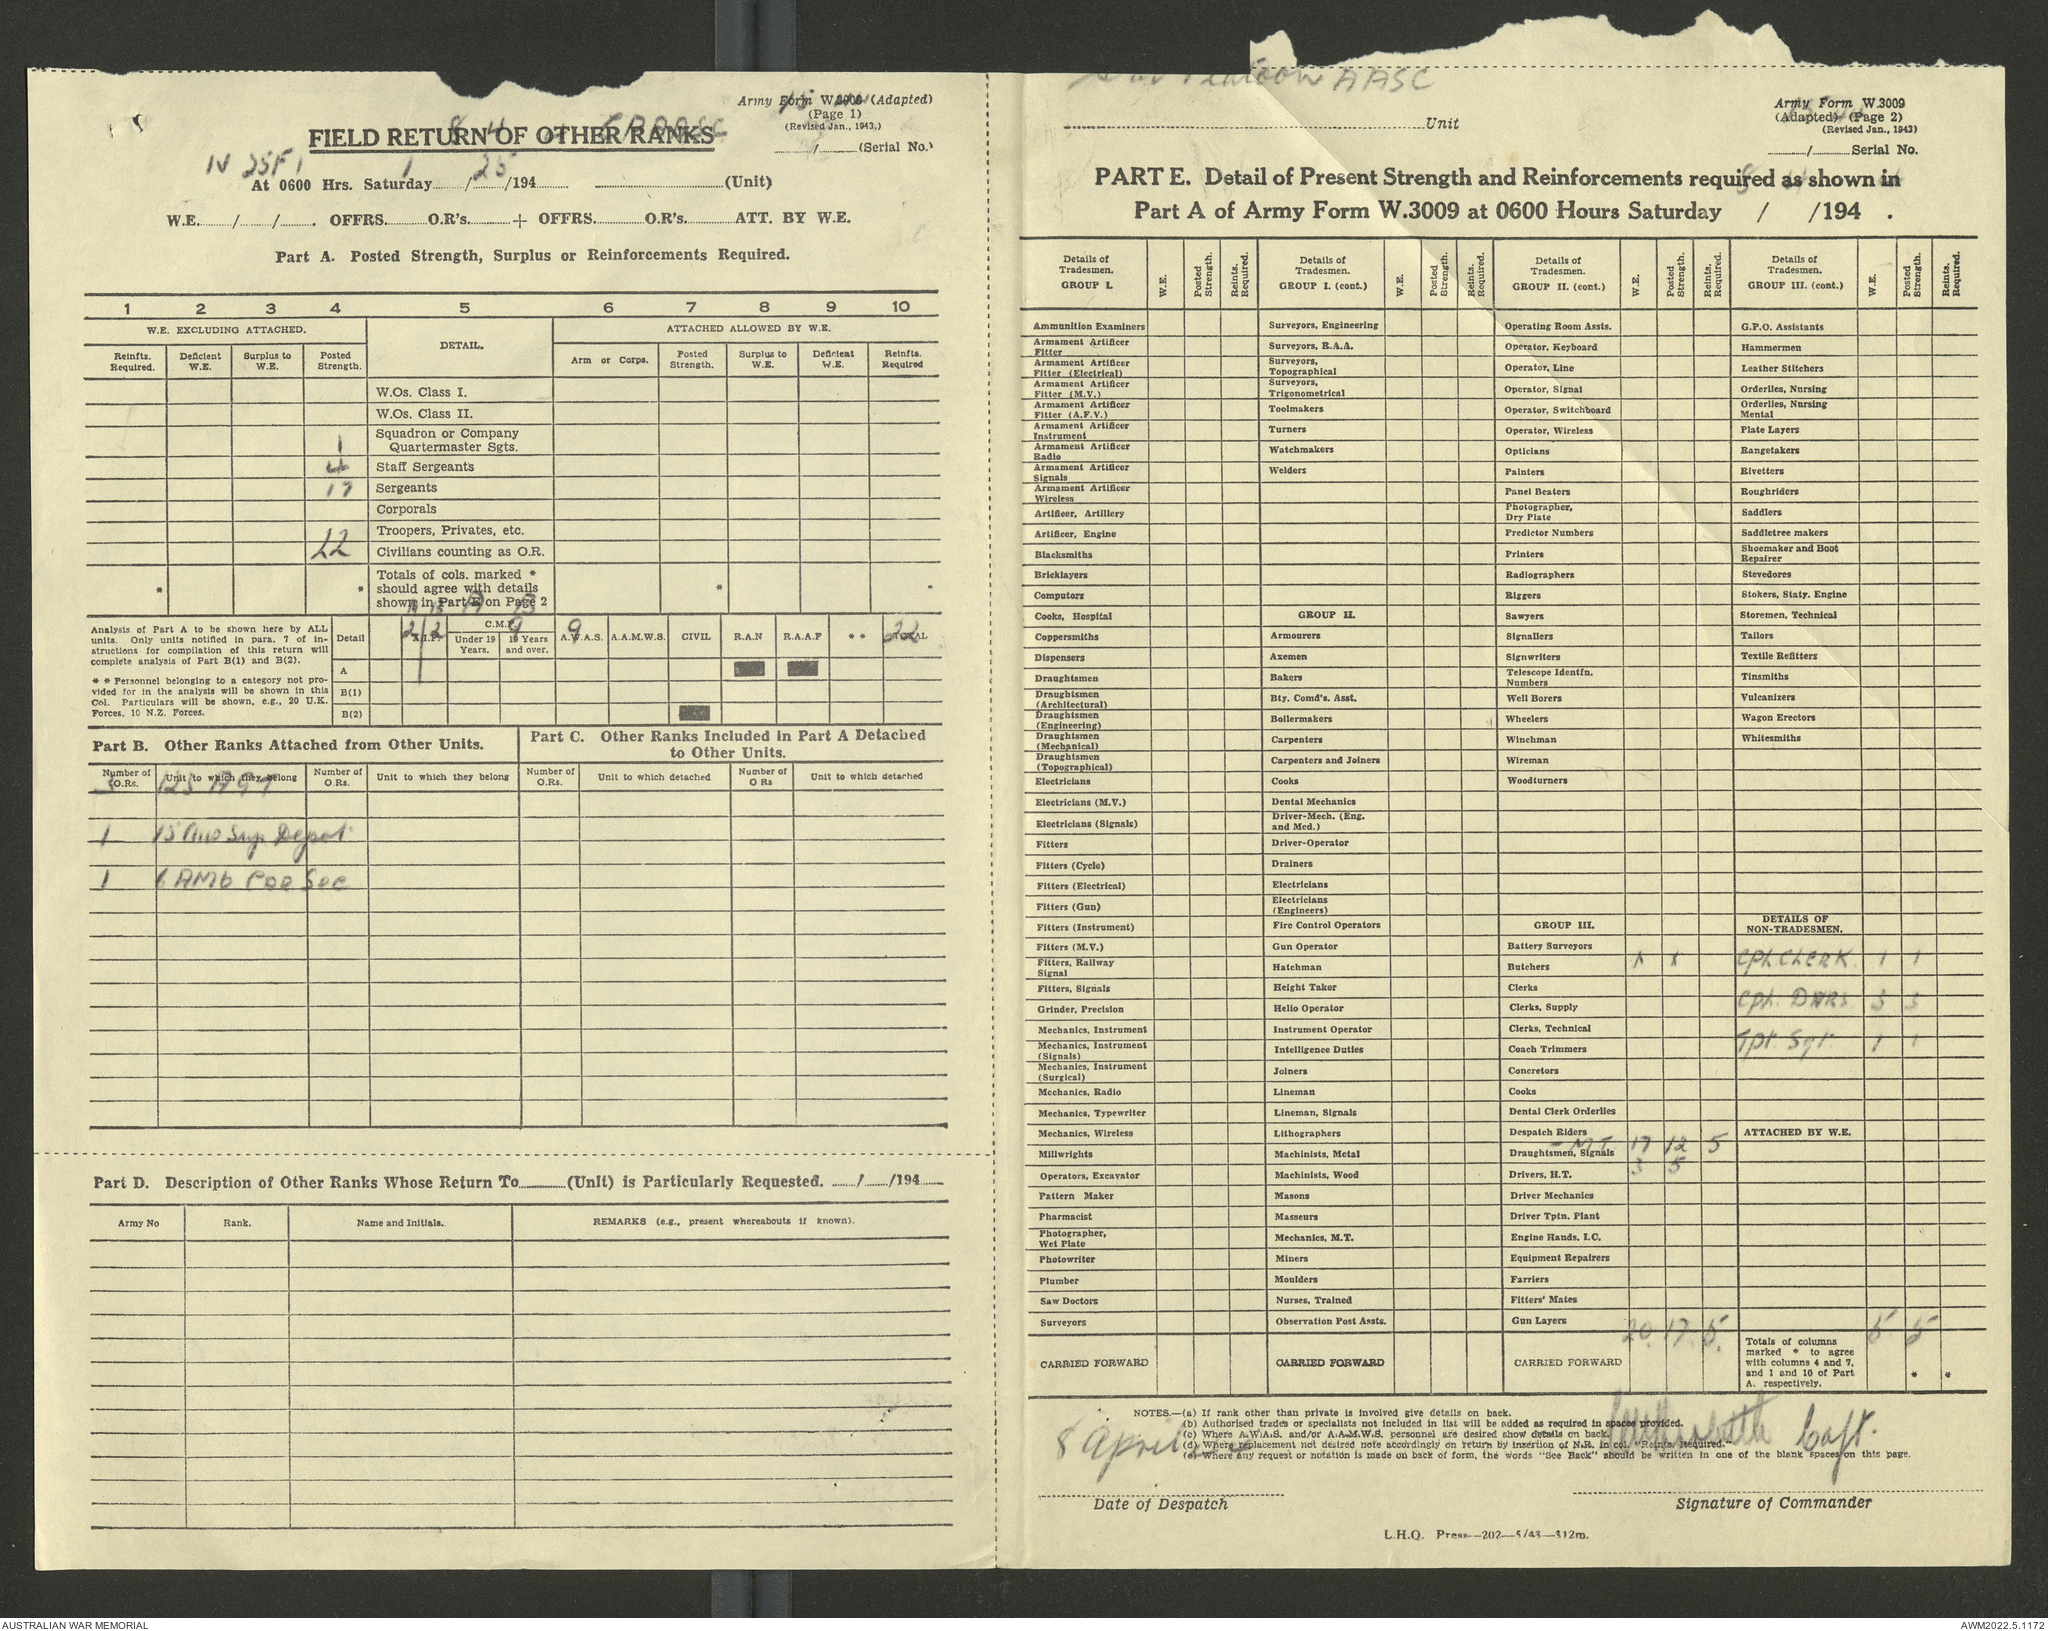 Platoon AASC
Army Form W.3009 (Adapted)
(Page 1)
(Revised Jan., 1943.)
/ (Serial No.)
FIELD RETURN OF OTHER RANKS
At 0600 Hrs. Saturday / /194 (Unit)
1 25
W.E. / / . OFFRS. O.R's. + OFFRS. O.R's. ATT. BY W.E.
Part A. Posted Strength, Surplus or Reinforcements Required.
1 2 3 4 5 6 7 8 9 10
W.E. EXCLUDING ATTACHED. DETAIL. ATTACHED ALLOWED BY W.E.
Reinfts. Required. Deficient W.E. Surplus to W.E. Posted Strength. Arm or Corps. Posted Strength. Surplus to W.E. Deficient W.E. Reinfts. Required
W.Os. Class I.
W.Os. Class II.
1 Squadron or Company Quartermaster Sgts.
4 Staff Sergeants
17 Sergeants
Corporals
Troopers, Privates, etc.
22 Civilians counting as O.R.
* * Totals of cols. marked * should agree with details shown in Part E on Page 2 * *
Analysis of Part A to be shown here by ALL
units. Only units notified in para. 7 of in-
structions for compilation of this return will
complete analysis of Part B(1) and B(2).
* * Personnel belonging to a category not pro-
vided for in the analysis will be shown in this
Col. Particulars will be shown, e.g., 20 U.K.
Forces, 10 N.Z. Forces.
Detail A.I.F. C.M.F. Under 19 Years. 19 Years and over. A.W.A.S. A.A.M.W.S. CIVIL R.A.N R.A.A.F ** TOTAL
2/2 9 9 22
A
B(1)
B(2)
Part B. Other Ranks Attached from Other Units.
Part C. Other Ranks Included in Part A Detached to Other Units.
Number of O.Rs. Unit to which they belong Number of O.Rs. Unit to which they belong Number of O.Rs. Unit to which detached Number of O Rs Unit to which detached
3 123 AGT
1 15 Aus Sup Depot
1 6 AMb Car Sec
Part D. Description of Other Ranks Whose Return To (Unit) is Particularly Requested. / /194
Army No Rank. Name and Initials. REMARKS (e.g., present whereabouts if known).
Unit
Army Form W.3009
(Adapted) (Page 2)
(Revised Jan., 1943)
/ Serial No.
PART E. Detail of Present Strength and Reinforcements required as shown in
Part A of Army Form W.3009 at 0600 Hours Saturday / /194 .
Details of Tradesmen. GROUP I. W.E. Posted Strength. Reints. Required.
Ammunition Examiners
Armament Artificer Fitter
Armament Artificer Fitter (Electrical)
Armament Artificer Fitter (M.V.)
Armament Artificer Fitter (A.F.V.)
Armament Artificer Instrument
Armament Artificer Radio
Armament Artificer Signals
Armament Artificer Wireless
Artificer, Artillery
Artificer, Engine
Blacksmiths
Bricklayers
Computors
Cooks, Hospital
Coppersmiths
Dispensers
Draughtsmen
Draughtsmen (Architectural)
Draughtsmen (Engineering)
Draughtsmen (Mechanical)
Draughtsmen (Topographical)
Electricians
Electricians (M.V.)
Electricians (Signals)
Fitters
Fitters (Cycle)
Fitters (Electrical)
Fitters (Gun)
Fitters (Instrument)
Fitters (M.V.)
Fitters, Railway Signal
Fitters, Signals
Grinder, Precision
Mechanics, Instrument
Mechanics, Instrument (Signals)
Mechanics, Instrument (Surgical)
Mechanics, Radio
Mechanics, Typewriter
Mechanics, Wireless
Millwrights
Operators, Excavator
Pattern Maker
Pharmacist
Photographer, Wet Plate
Photowriter
Plumber
Saw Doctors
Surveyors
CARRIED FORWARD
Details of Tradesmen. GROUP I. (cont.) W.E. Posted Strength. Reints. Required.
Surveyors, Engineering
Surveyors, R.A.A.
Surveyors, Topographical
Surveyors, Trigonometrical
Toolmakers
Turners
Watchmakers
Welders
GROUP II.
Armourers
Axemen
Bakers
Bty. Comd's. Asst.
Boilermakers
Carpenters
Carpenters and Joiners
Cooks
Dental Mechanics
Driver-Mech. (Eng. and Med.)
Driver-Operator
Drainers
Electricians
Electricians (Engineers)
Fire Control Operators
Gun Operator
Hatchman
Height Taker
Helio Operator
Instrument Operator
Intelligence Duties
Joiners
Lineman
Lineman, Signals
Lithographers
Machinists, Metal
Machinists, Wood
Masons
Masseurs
Mechanics, M.T.
Miners
Moulders
Nurses, Trained
Observation Post Assts.
CARRIED FORWARD
Details of Tradesmen. GROUP II. (cont.) W.E. Posted Strength. Reints. Required.
Operating Room Assts.
Operator, Keyboard
Operator, Line
Operator, Signal
Operator, Switchboard
Operator, Wireless
Opticians
Painters
Panel Beaters
Photographer, Dry Plate
Predictor Numbers
Printers
Radiographers
Riggers
Sawyers
Signallers
Signwriters
Telescope Identfn. Numbers
Well Borers
Wheelers
Winchman
Wireman
Woodturners
GROUP III.
Battery Surveyors
Butchers
Clerks
Clerks, Supply
Clerks, Technical
Coach Trimmers
Concretors
Cooks
Dental Clerk Orderlies
Despatch Riders
- MT. 17 12 5
Draughtsmen, Signals
3 5
Drivers, H.T.
Driver Mechanics
Driver Tptn. Plant
Engine Hands, I.C.
Equipment Repairers
Farriers
Fitters' Mates
Gun Layers
20 17 5
CARRIED FORWARD
Details of Tradesmen. GROUP III. (cont.) W.E. Posted Strength. Reints. Required.
G.P.O. Assistants
Hammermen
Leather Stitchers
Orderlies, Nursing
Orderlies, Nursing Mental
Plate Layers
Rangetakers
Rivetters
Roughriders
Saddlers
Saddletree makers
Shoemaker and Boot Repairer
Stevedores
Stokers, Staty. Engine
Storemen, Technical
Tailors
Textile Refitters
Tinsmiths
Vulcanizers
Wagon Erectors
Whitesmiths
DETAILS OF NON-TRADESMEN.
Cpl. CLERK. 1 1
Cpl. DVRS. 3 3
Tpt. Sgt. 1 1
ATTACHED BY W.E.
5 5
Totals of columns marked * to agree with columns 4 and 7, and 1 and 10 of Part A. respectively. * *
NOTES.—(a) If rank other than private is involved give details on back.
(b) Authorised trades or specialists not included in list will be added as required in spaces provided.
(c) Where A.W.A.S. and/or A.A.M.W.S. personnel are desired show details on back.
(d) Where replacement not desired note accordingly on return by insertion of N.R. in col. "Reints. Required."
(e) Where any request or notation is made on back of form, the words "See Back" should be written in one of the blank spaces on this page.
8 April Capt.
Date of Despatch Signature of Commander
L.H.Q. Press—202—5/43—312m.
AUSTRALIAN WAR MEMORIAL AWM2022.5.1172